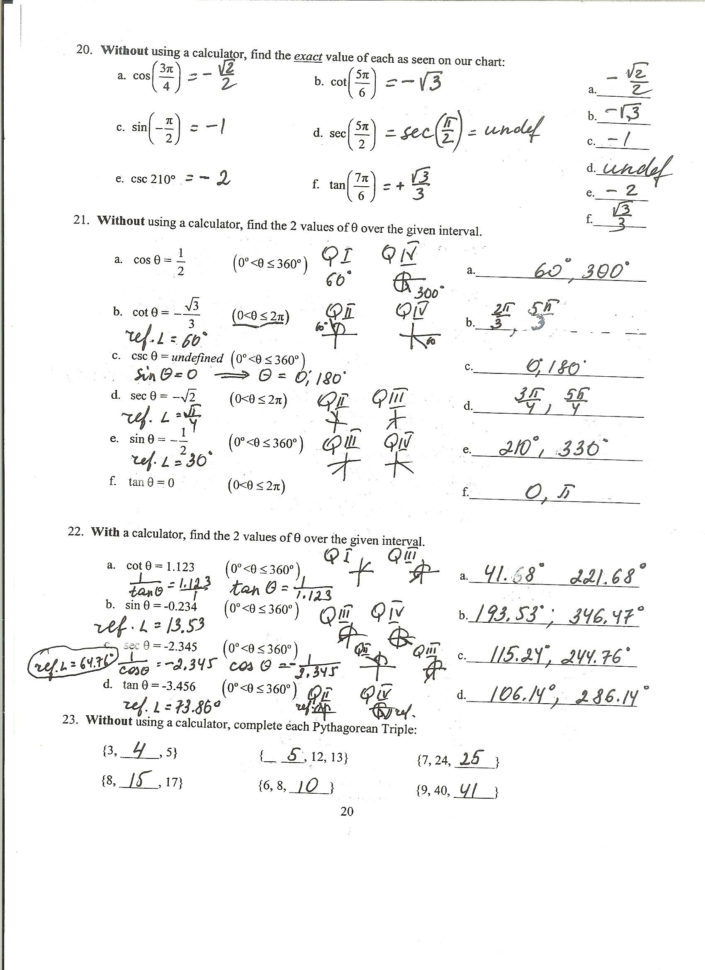 20. Without using a calculator, find the exact value of each as seen on our chart:
a. cos(3π/4) = -√2/2
b. cot(5π/6) = -√3
a. -√2/2
c. sin(-π/2) = -1
d. sec(5π/2) = sec(π/2) = undef
b. -√3
c. -1
d. undef
e. csc 210° = -2
f. tan(7π/6) = + √3/3
e. -2
f. √3/3
21. Without using a calculator, find the 2 values of θ over the given interval.
a. cos θ = 1/2 (0° <θ ≤ 360°) Q I Q IV
60° 300°
a. 60°, 300°
b. cot θ = -√3/3 (0<θ ≤ 2π) Q II Q IV
ref. L = 60° 60° 60
b. 2π/3, 5π/3
c. csc θ = undefined (0° <θ ≤ 360°)
sin θ = 0 ⟹ θ = 0°, 180°
c. 0°, 180°
d. sec θ = -√2 (0<θ ≤ 2π) Q II Q III
ref. L = π/4
d. 3π/4, 5π/4
e. sin θ = -1/2 (0° <θ ≤ 360°) Q III Q IV
ref. L = 30°
e. 210°, 330°
f. tan θ = 0 (0<θ ≤ 2π)
f. 0, π
22. With a calculator, find the 2 values of θ over the given interval.
a. cot θ = 1.123 (0° <θ ≤ 360°) Q I Q III
1/tan θ = 1.123/1 tan θ = 1/1.123
a. 41.68° 221.68°
b. sin θ = -0.234 (0° <θ ≤ 360°) Q III Q IV
ref. L = 13.53
b. 193.53°; 346.47°
c. sec θ = -2.345 (0° <θ ≤ 360°) Q II Q III
ref. L = 64.76° 1/cosθ = -2.345 cos θ = -1/2.345
c. 115.24°, 244.76°
d. tan θ = -3.456 (0° <θ ≤ 360°) Q II Q IV
ref. L = 73.86° ref. ref.
d. 106.14°, 286.14°
23. Without using a calculator, complete each Pythagorean Triple:
{3, 4, 5} {5, 12, 13} {7, 24, 25}
{8, 15, 17} {6, 8, 10} {9, 40, 41}
20